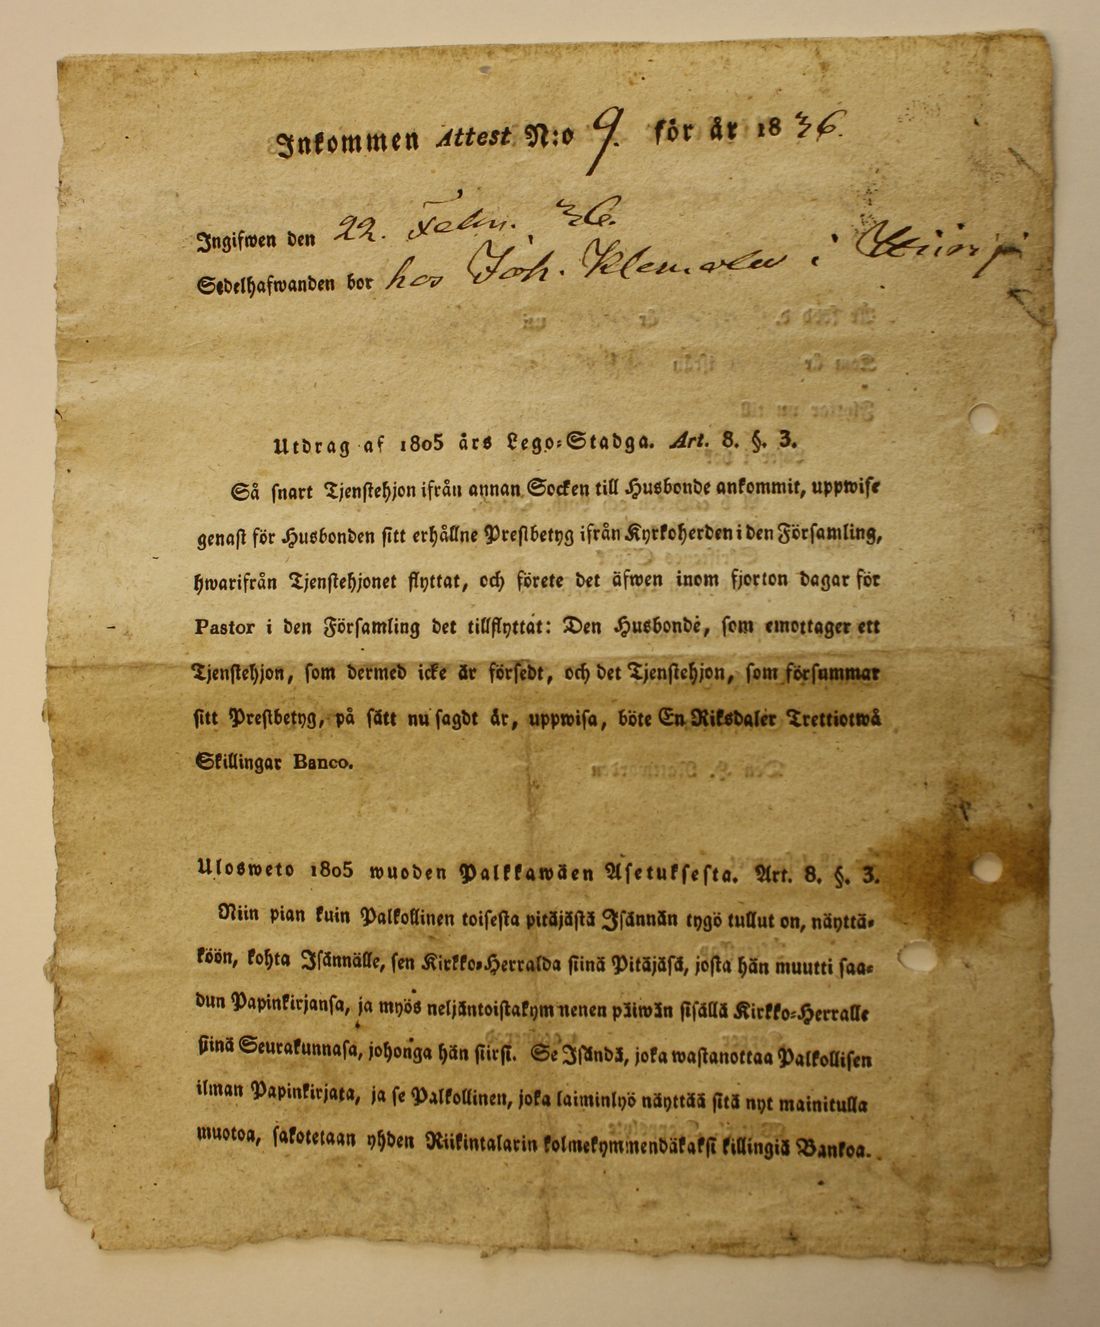 Inkommen Attest N:o 9. för år 1836.
Ingifwen den 22. Febru. 36.
Sedelhafwanden bor hos Joh. Klemola i
Utdrag af 1805 års Lego-Stadga. Art. 8. §. 3.
Så snart Tjenstehjon ifrån annan Socken till Husbonde ankommit, uppwise
genast för Husbonden sitt erhållne Prestbetyg ifrån Kyrkoherden i den Församling,
hwarifrån Tjenstehjonet flyttat, och förete det äfwen inom fjorton dagar för
Pastor i den Församling det tillflyttat: Den Husbonde, som emottager ett
Tjenstehjon, som dermed icke är försedt, och det Tjenstehjon, som försummar
sitt Prestbetyg, på sätt nu sagdt är, uppwisa, böte En Riksdaler Trettiotwå
Skillingar Banco.
Ulosweto 1805 wuoden Palkkawäen Asetuksesta. Art. 8. §. 3.
Niin pian kuin Palkollinen toisesta pitäjästä Isännän tygö tullut on, näyttä-
köön, kohta Isännälle, sen Kirkko-Herralda siinä Pitäjäsä, josta hän muutti saa-
dun Papinkirjansa, ja myös neljäntoistakymmenen päiwän sisällä Kirkko-Herralle
siinä Seurakunnasa, johonga hän siirsi. Se Isändä, joka wastanottaa Palkollisen
ilman Papinkirjata, ja se Palkollinen, joka laiminlyö näyttää sitä nyt mainitulla
muotoa, sakotetaan yhden Riikintalarin kolmekymmendäkaksi killingiä Bankoa.